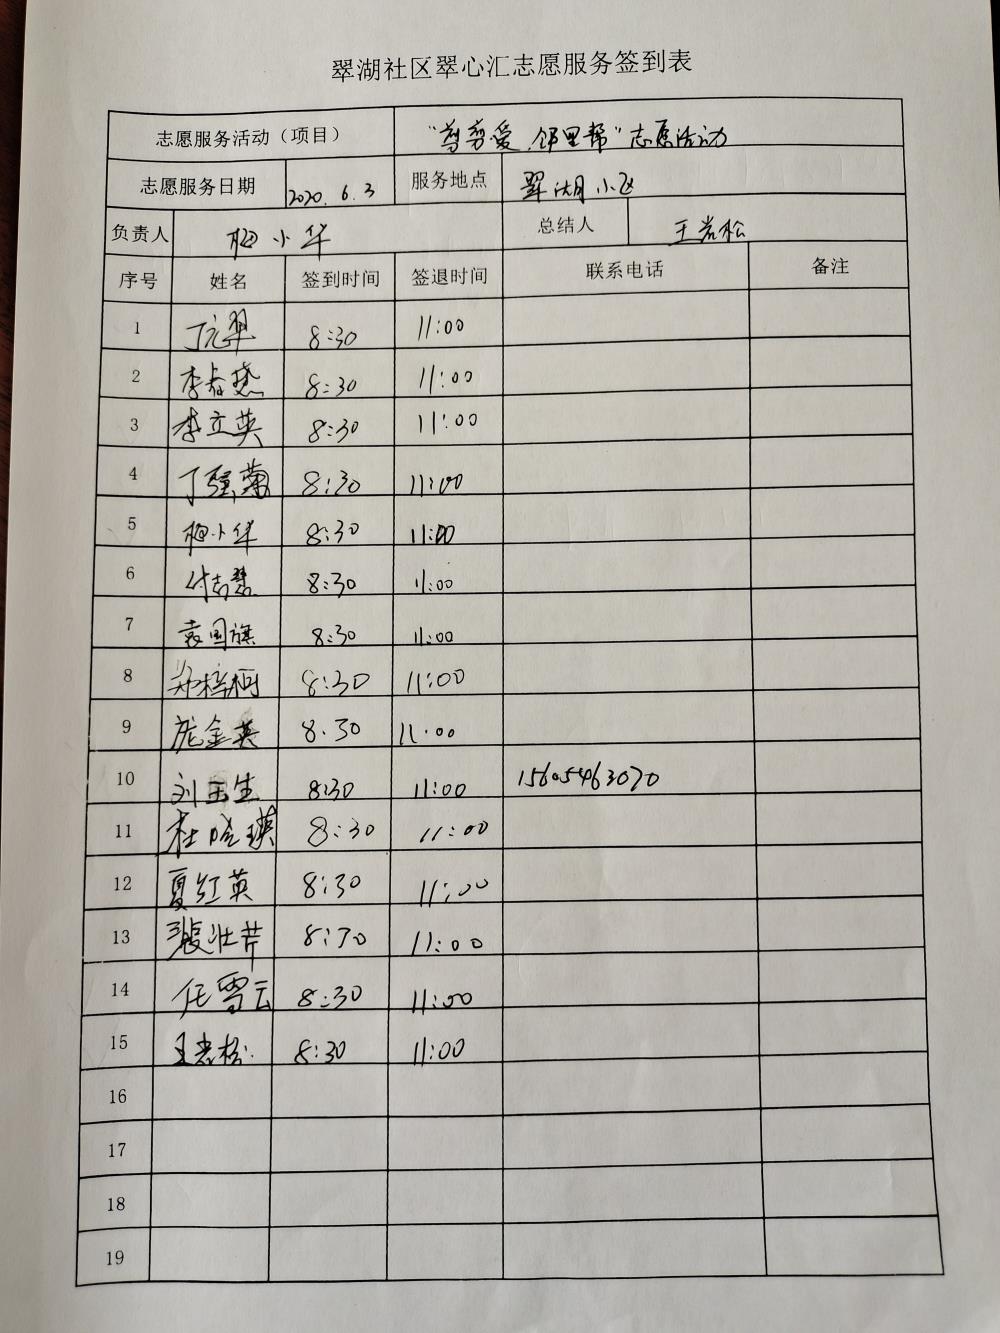 翠湖社区翠心汇志愿服务签到表
志愿服务活动（项目） 剪爱 邻里帮"志愿活动
志愿服务日期 2020.6.3 服务地点 翠湖小区
负责人 梅小华 总结人 王岩松
序号 姓名 签到时间 签退时间 联系电话 备注
1 8:30 11:00
2 8:30 11:00
3 李立英 8:30 11:00
4 丁强菊 8:30 11:00
5 梅小华 8:30 11:00
6 8:30 11:00
7 袁国旗 8:30 11:00
8 郑梓柯 8:30 11:00
9 庞金英 8.30 11.00
10 刘玉生 8:30 11:00 15605463070
11 杜晓瑛 8:30 11:00
12 夏红英 8:30 11:00
13 张壮芹 8:30 11:00
14 任雪云 8:30 11:00
15 王岩松 8:30 11:00
16
17
18
19